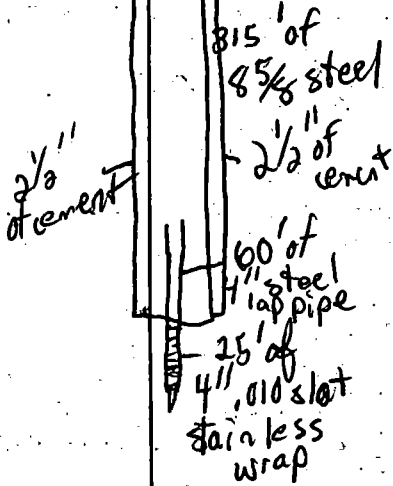 315' of
8 5/8 steel
2 1/2"
of cement
2 1/2" of
cement
60' of
4" steel
lap pipe
25' of
4" .010 slot
stainless
wrap